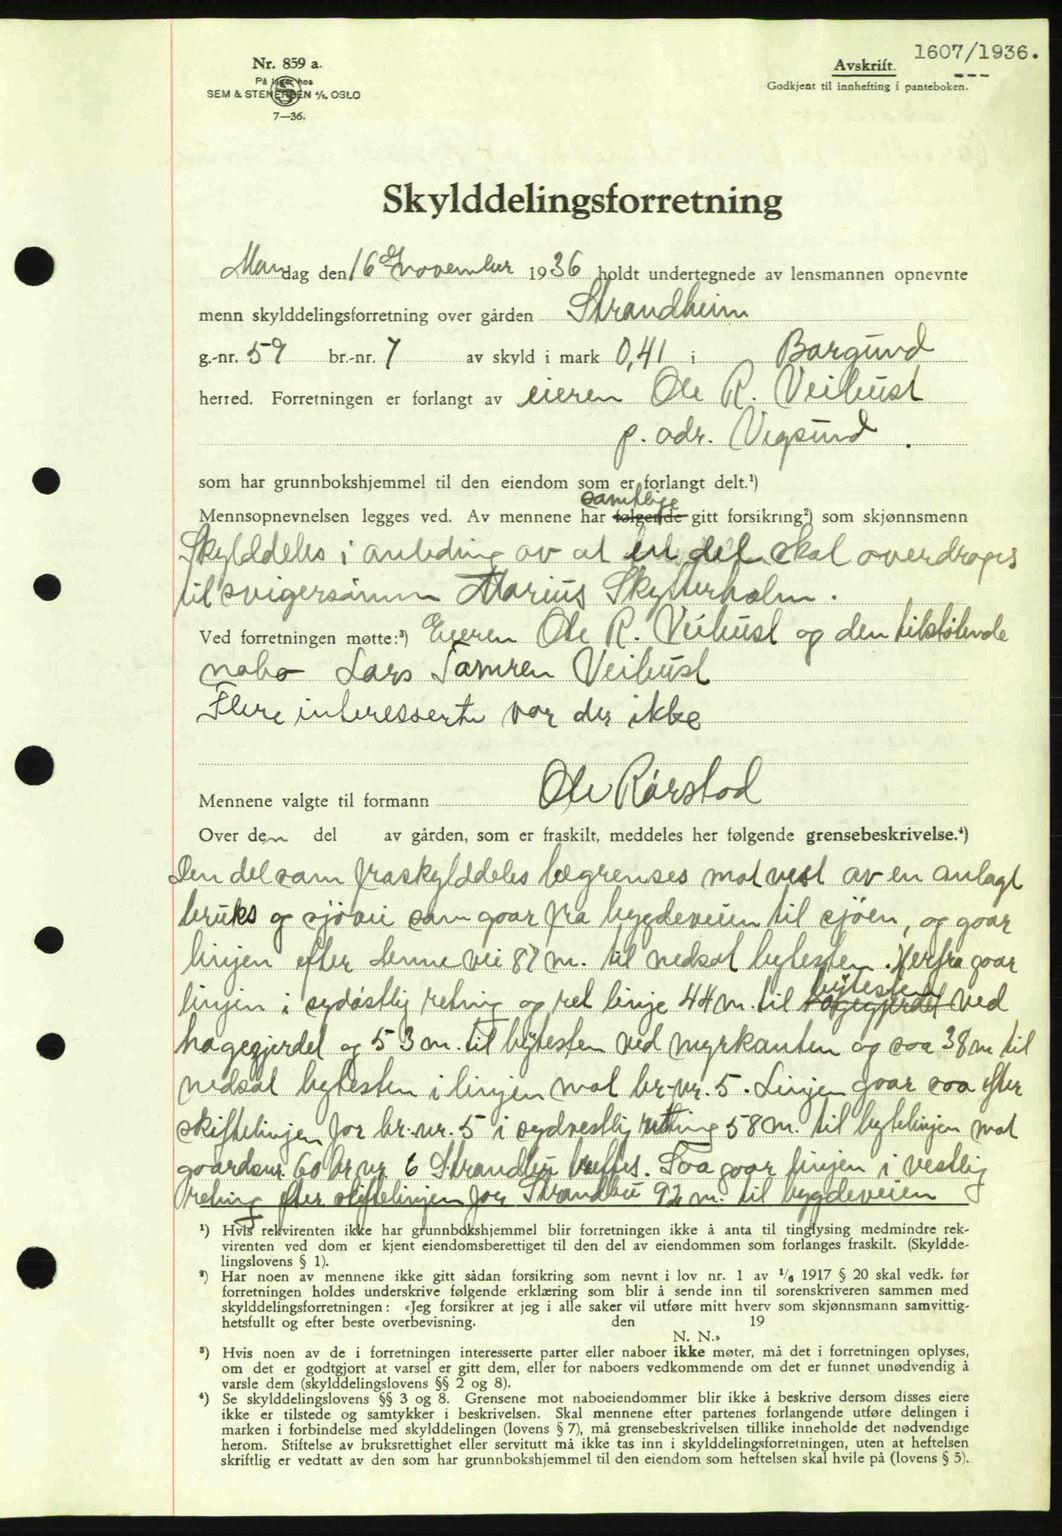 1607/1936.
Nr. 859 a.
På lager hos
SEM & STENERSEN A/S, OSLO
7—36.
Avskrift.
Godkjent til innhefting i panteboken.
Skylddelingsforretning
Mandag den 16de november 1936 holdt undertegnede av lensmannen opnevnte
menn skylddelingsforretning over gården Strandheim
g.-nr. 59 br.-nr. 7 av skyld i mark 0,41 i Borgund
herred. Forretningen er forlangt av eieren Ole R. Veibust
p. adr. Vegsund.
som har grunnbokshjemmel til den eiendom som er forlangt delt.¹)
samtlige
Mennsopnevnelsen legges ved. Av mennene har følgende gitt forsikring²) som skjønnsmenn
Skylddeles i anledning av at en del skal overdrages
til svigersønnen Marius Skytterholm.
Ved forretningen møtte:³) Eieren Ole R. Veibust og den tilstøtende
nabo Lars Veibust
Flere interesserte var der ikke
Mennene valgte til formann Ole Rörstad
Over den del av gården, som er fraskilt, meddeles her følgende grensebeskrivelse.⁴)
Den del som fraskylddeles begrenses mot vest av en anlagt
bruks og sjövei som goar fra bygdeveien til sjöen, og goar
linjen efter denne vei 87 m. til nedsat bytesten. Herfra goar
bytesten
linjen i sydöstlig retning og ret linje 44 m. til hagegjerdet ved
hagegjerdet og 53 m. til bytesten ved myrkanten og saa 38 m til
nedsat bytesten i linjen mot br.-nr. 5. Linjen goar saa efter
skiftelinjen for br.-nr. 5 i sydvestlig retning 58 m. til bytelinjen mot
goardsnr. 60 br nr 6 Strandbu treffes. Saa goar linjen i vestlig
retning efter skiftelinjen for Strandbu 92 m. til bygdeveien
¹) Hvis rekvirenten ikke har grunnbokshjemmel blir forretningen ikke å anta til tinglysing medmindre rek-
virenten ved dom er kjent eiendomsberettiget til den del av eiendommen som forlanges fraskilt. (Skyldde-
lingslovens § 1).
²) Har noen av mennene ikke gitt sådan forsikring som nevnt i lov nr. 1 av 1/6 1917 § 20 skal vedk. før
forretningen holdes underskrive følgende erklæring som blir å sende inn til sorenskriveren sammen med
skylddelingsforretningen: «Jeg forsikrer at jeg i alle saker vil utføre mitt hverv som skjønnsmann samvittig-
hetsfullt og efter beste overbevisning. den 19
N. N.»
³) Hvis noen av de i forretningen interesserte parter eller naboer ikke møter, må det i forretningen oplyses,
om det er godtgjort at varsel er gitt dem, eller for naboers vedkommende om det er funnet unødvendig å
varsle dem (skylddelingslovens §§ 2 og 8).
⁴) Se skylddelingslovens §§ 3 og 8. Grensene mot naboeiendommer blir ikke å beskrive dersom disses eiere
ikke er tilstede og samtykker i beskrivelsen. Skal mennene efter partenes forlangende utføre delingen i
marken i forbindelse med skylddelingen (lovens § 7), må grensebeskrivelsen tillike inneholde det nødvendige
herom. Stiftelse av bruksrettighet eller servitutt må ikke tas inn i skylddelingsforretningen, uten at heftelsen
skriftlig er vedtatt av den som har grunnbokshjemmel til den eiendom som heftelsen skal hvile på (lovens § 5).